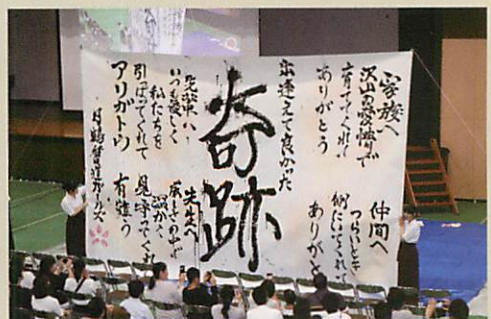 家族へ
沢山の愛情で
育ててくれて
ありがとう
仲間へ
つらいとき
側にいてくれて
ありがと
出逢えて良かった
奇跡
先生へ
厳しさの中で
温かく
見守ってくれ
有難う
先輩へ
いつも優しく
私たちを
引っぱってくれて
アリガトウ
書道ガールズ